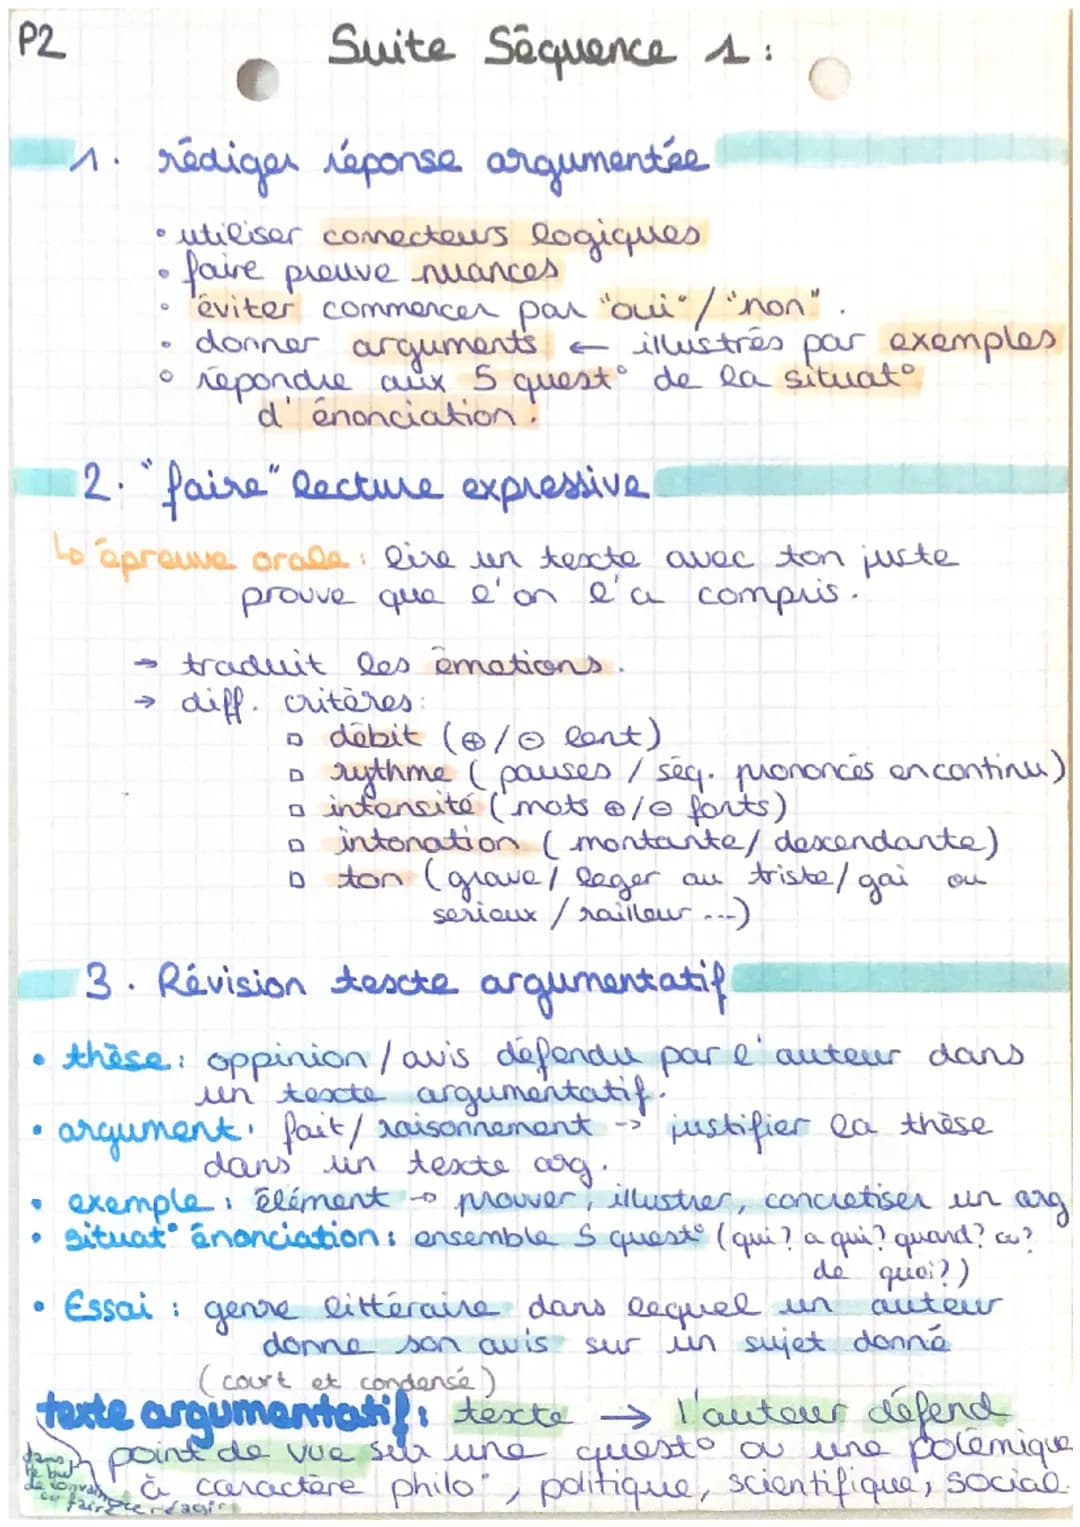 P2
Suite Séquence 1 :
1. rédiger réponse argumentée
• utiliser connecteurs logiques
• faire preuve nuances
• éviter commencer par "oui" / "non".
• donner arguments ← illustrés par exemples
• répondre aux 5 quest° de la situat°
d'énonciation.
2. "faire" lecture expressive
↳ épreuve orale : lire un texte avec ton juste
prouve que l'on l'a compris.
→ traduit les émotions.
→ diff. critères :
▫ débit (⊕/⊖ lent)
▫ rythme ( pauses / séq. prononcés en continu)
▫ intensité ( mots ⊕/⊖ forts)
▫ intonation ( montante / descendante)
▫ ton (grave / leger ou triste / gai ou
serieux / railleur ...)
3. Révision texte argumentatif
• thèse : oppinion / avis défendu par l'auteur dans
un texte argumentatif.
• argument : fait / raisonnement → justifier la thèse
dans un texte arg.
• exemple : élément → prouver, illustrer, concrétiser un arg
• situat° énonciation : ensemble 5 quest° (qui? a qui? quand? où?
de quoi?)
• Essai : genre littéraire dans lequel un auteur
donne son avis sur un sujet donné
(court et condensé)
texte argumentatif : texte → l'auteur défend
point de vue sur une quest° ou une polémique
à caractère philo°, politique, scientifique, social.
dans
le but
de convaincre
ou faire réagir